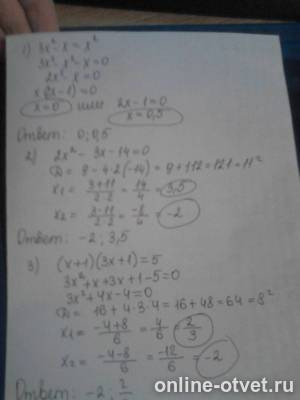 1) 3x² - x = x²
3x² - x² - x = 0
2x² - x = 0
x(2x-1) = 0
x=0 или 2x-1=0
x=0,5
Ответ: 0; 0,5
2) 2x² - 3x - 14 = 0
D = 9 - 4·2·(-14) = 9 + 112 = 121 = 11²
x₁ = (3+11)/(2·2) = 14/4 = 3,5
x₂ = (3-11)/(2·2) = -8/4 = -2
Ответ: -2; 3,5
3) (x+1)(3x+1) = 5
3x² + x + 3x + 1 - 5 = 0
3x² + 4x - 4 = 0
D = 16 + 4·3·4 = 16 + 48 = 64 = 8²
x₁ = (-4+8)/6 = 4/6 = 2/3
x₂ = (-4-8)/6 = -12/6 = -2
Ответ: -2; 2
online-otvet.ru